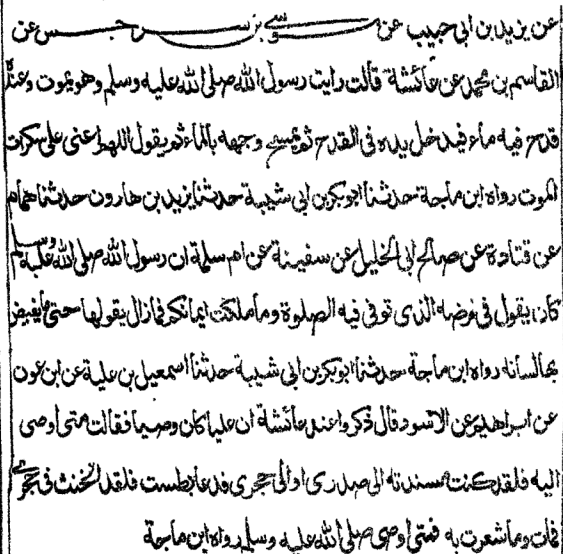 عن يزيد بن ابى حبيب عن موسى بن سرجس عن
القاسم بن محمد عن عائشة قالت رايت رسول الله صلى الله عليه وسلم وهو يموت وعنده
قدح فيه ماء فيدخل يده فى القدح ثم يمسح وجهه بالماء ثم يقول اللهم اعنى على سكرات
الموت رواه ابن ماجة حدثنا ابوبكر بن ابى شيبة حدثنا يزيد بن هارون حدثنا همام
عن قتادة عن صالح ابى الخليل عن سفينة عن ام سلمة ان رسول الله صلى الله عليه وسلم
كان يقول فى مرضه الذى توفى فيه الصلوة وما ملكت ايمانكم فما زال يقولها حتى ما يفيض
بها لسانه رواه ابن ماجة حدثنا ابوبكر بن ابى شيبة حدثنا اسمعيل بن علية عن ابن عون
عن ابراهيم عن الاسود قال ذكروا عند عائشة ان عليا كان وصيا فقالت متى اوصى
اليه فلقد كنت مسندته الى صدرى او الى حجرى فدعا بطست فلقد انخنث فى حجرى
فمات وما شعرت به فمتى اوصى صلى الله عليه وسلم رواه ابن ماجة